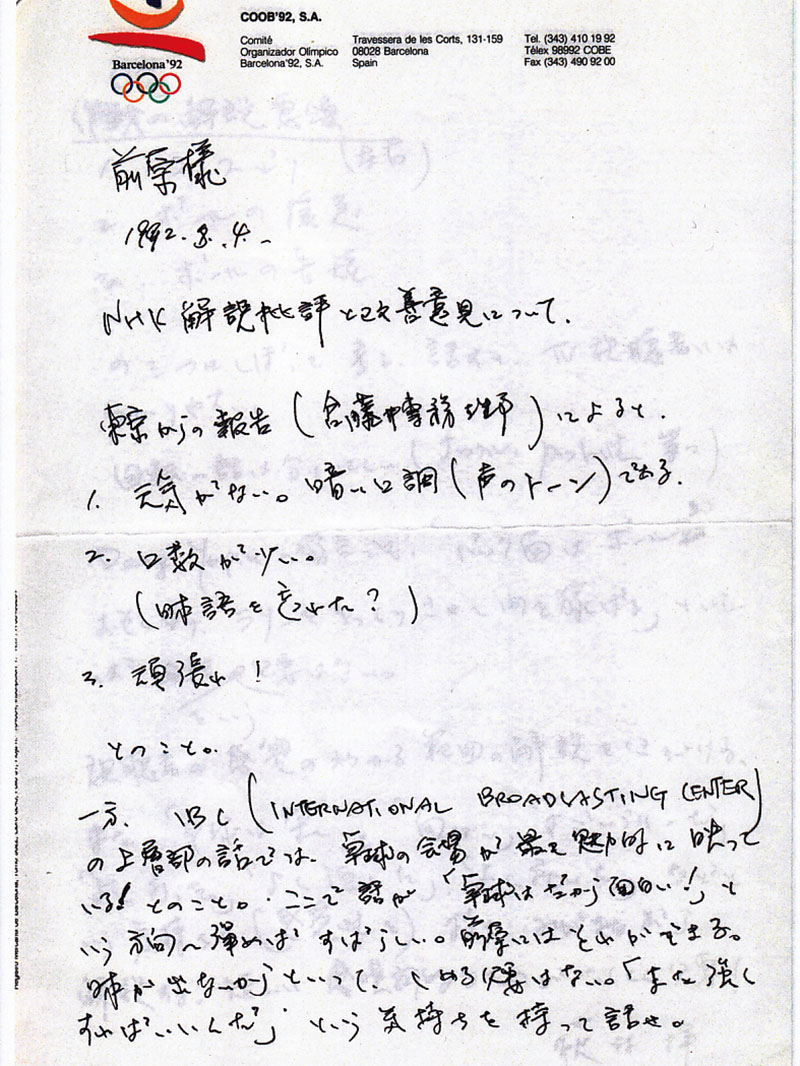 COOB'92, S.A.
Comité
Organizador Olímpico
Barcelona'92, S.A.
Travessera de les Corts, 131-159
08028 Barcelona
Spain
Tel. (343) 410 19 92
Télex 98992 COBE
Fax (343) 490 92 00
Barcelona'92
前原様
1992. 8. 4.
NHK 解説批評と改善意見について.
東京からの報告(専務)によると.
1. 元気がない。暗い口調(声のトーン)である.
2. 口数が少い。
(日本語を忘れた?)
3. 頑張れ!
とのこと。
一方. IBC (INTERNATIONAL BROADCASTING CENTER)
の上層部の話では、卓球の会場が最も魅力的に映って
いる! とのこと。ここで話が「卓球はだから面白い!」と
いう方向へ弾めばすばらしい。前原にはそれができる。
日本が出ないからといって、しめる必要はない。「また強く
すればいいんだ」という気持ちを持って話せ。